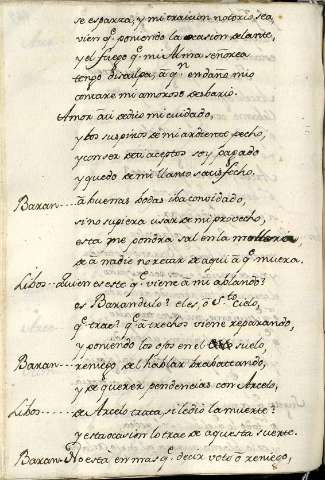 se esparza, y mi traicion notorio sea,
vien q. poniendo la ocasion delante,
y el fuego q. mi Alma señorea
tengo disculpa, a qn en daño mio
contare mi amoroso desbario.
Amor aū dedico mi cuidado,
y los suspiros de mi ardiente pecho,
y con ser de ti aceptos soy pagado
y quedo de mi llanto satisfecho,
Baran.... a buenas bodas iba convidado,
si no supiera usar de mi provecho,
esta me pondra sal en la mollera
de a nadie no rezar de aqui a q. muera.
Libos... Quien es este q. viene a mi ablando?
es Barandulo? el es, o sto. cielo,
q. trae? q. a trechos viene reparando,
y poniendo los ojos en el suelo,
Baran.... reniego del hablar brabattando,
y de querer pendencias con Arcelo,
Libos.... de Arcelo trata, si le dio la muerte?
y esta ocasion lo trae de aquesta suerte.
Baran. No está en mas q. decir voto o reniego,